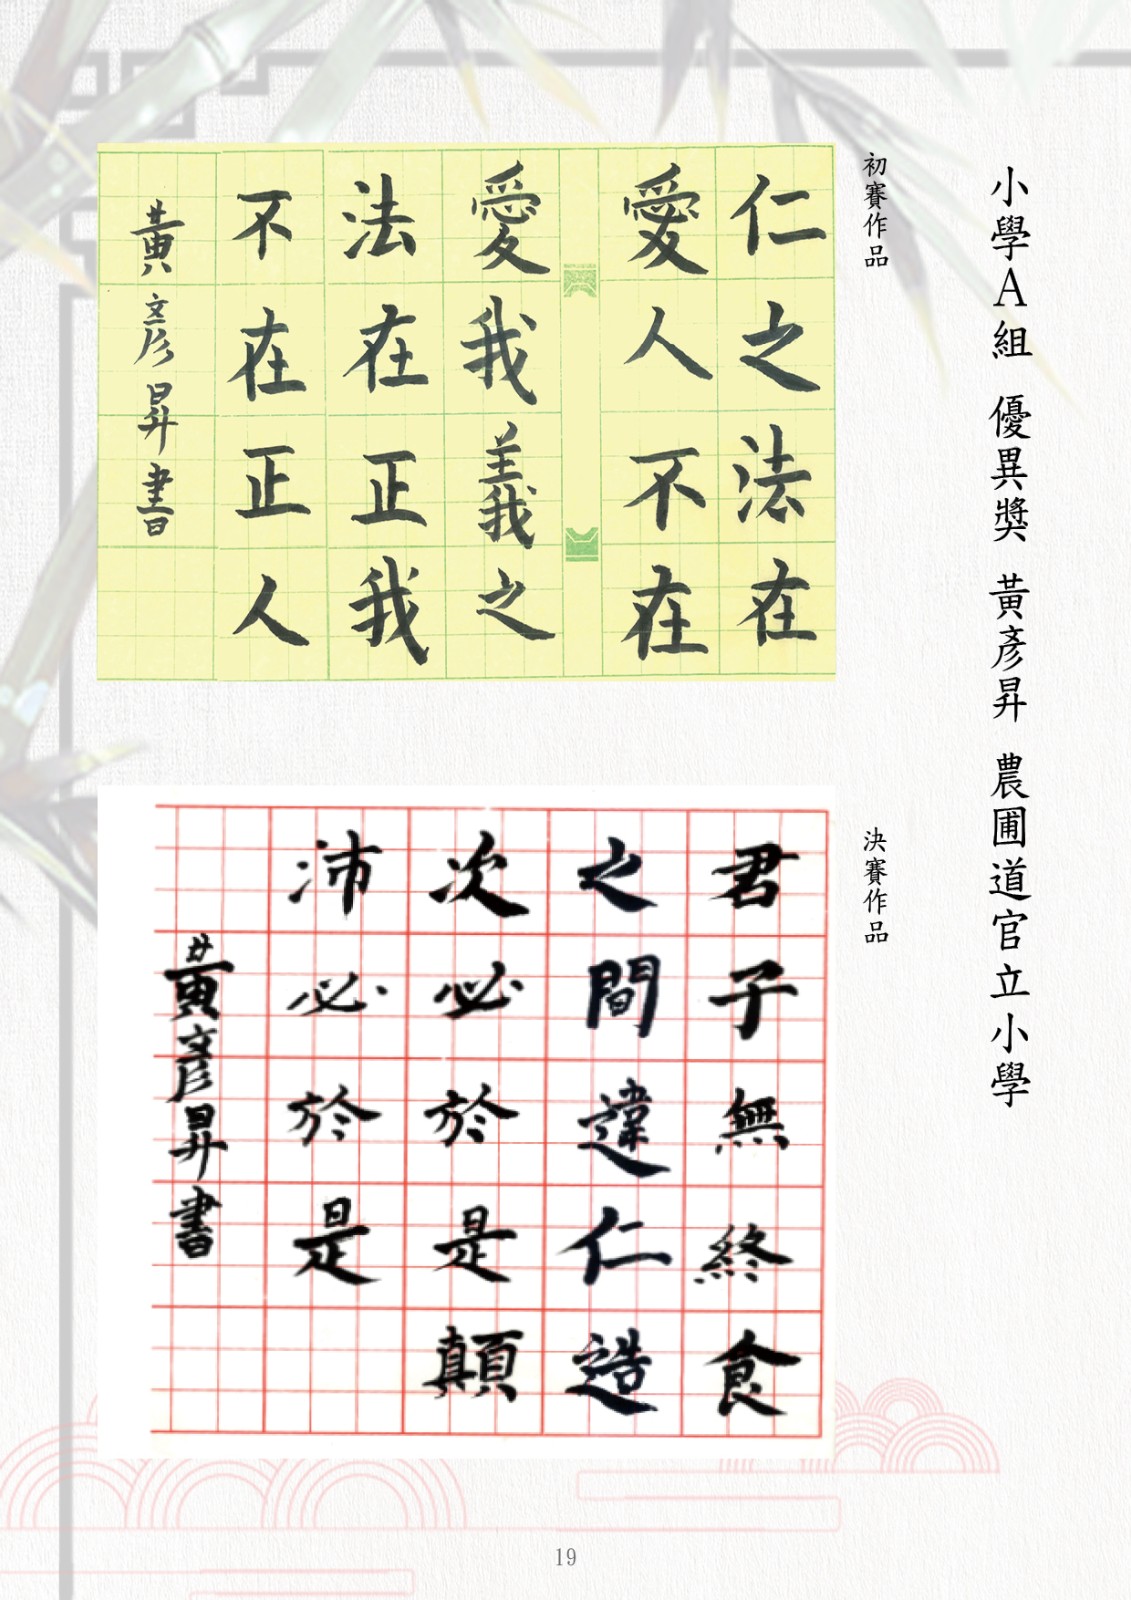 小學A組 優異獎 黃彥昇 農圃道官立小學
初賽作品
仁之法在
愛人不在
愛我義之
法在正我
不在正人
黃彥昇書
決賽作品
君子無終食
之間違仁造
次必於是顛
沛必於是
黃彥昇書
19